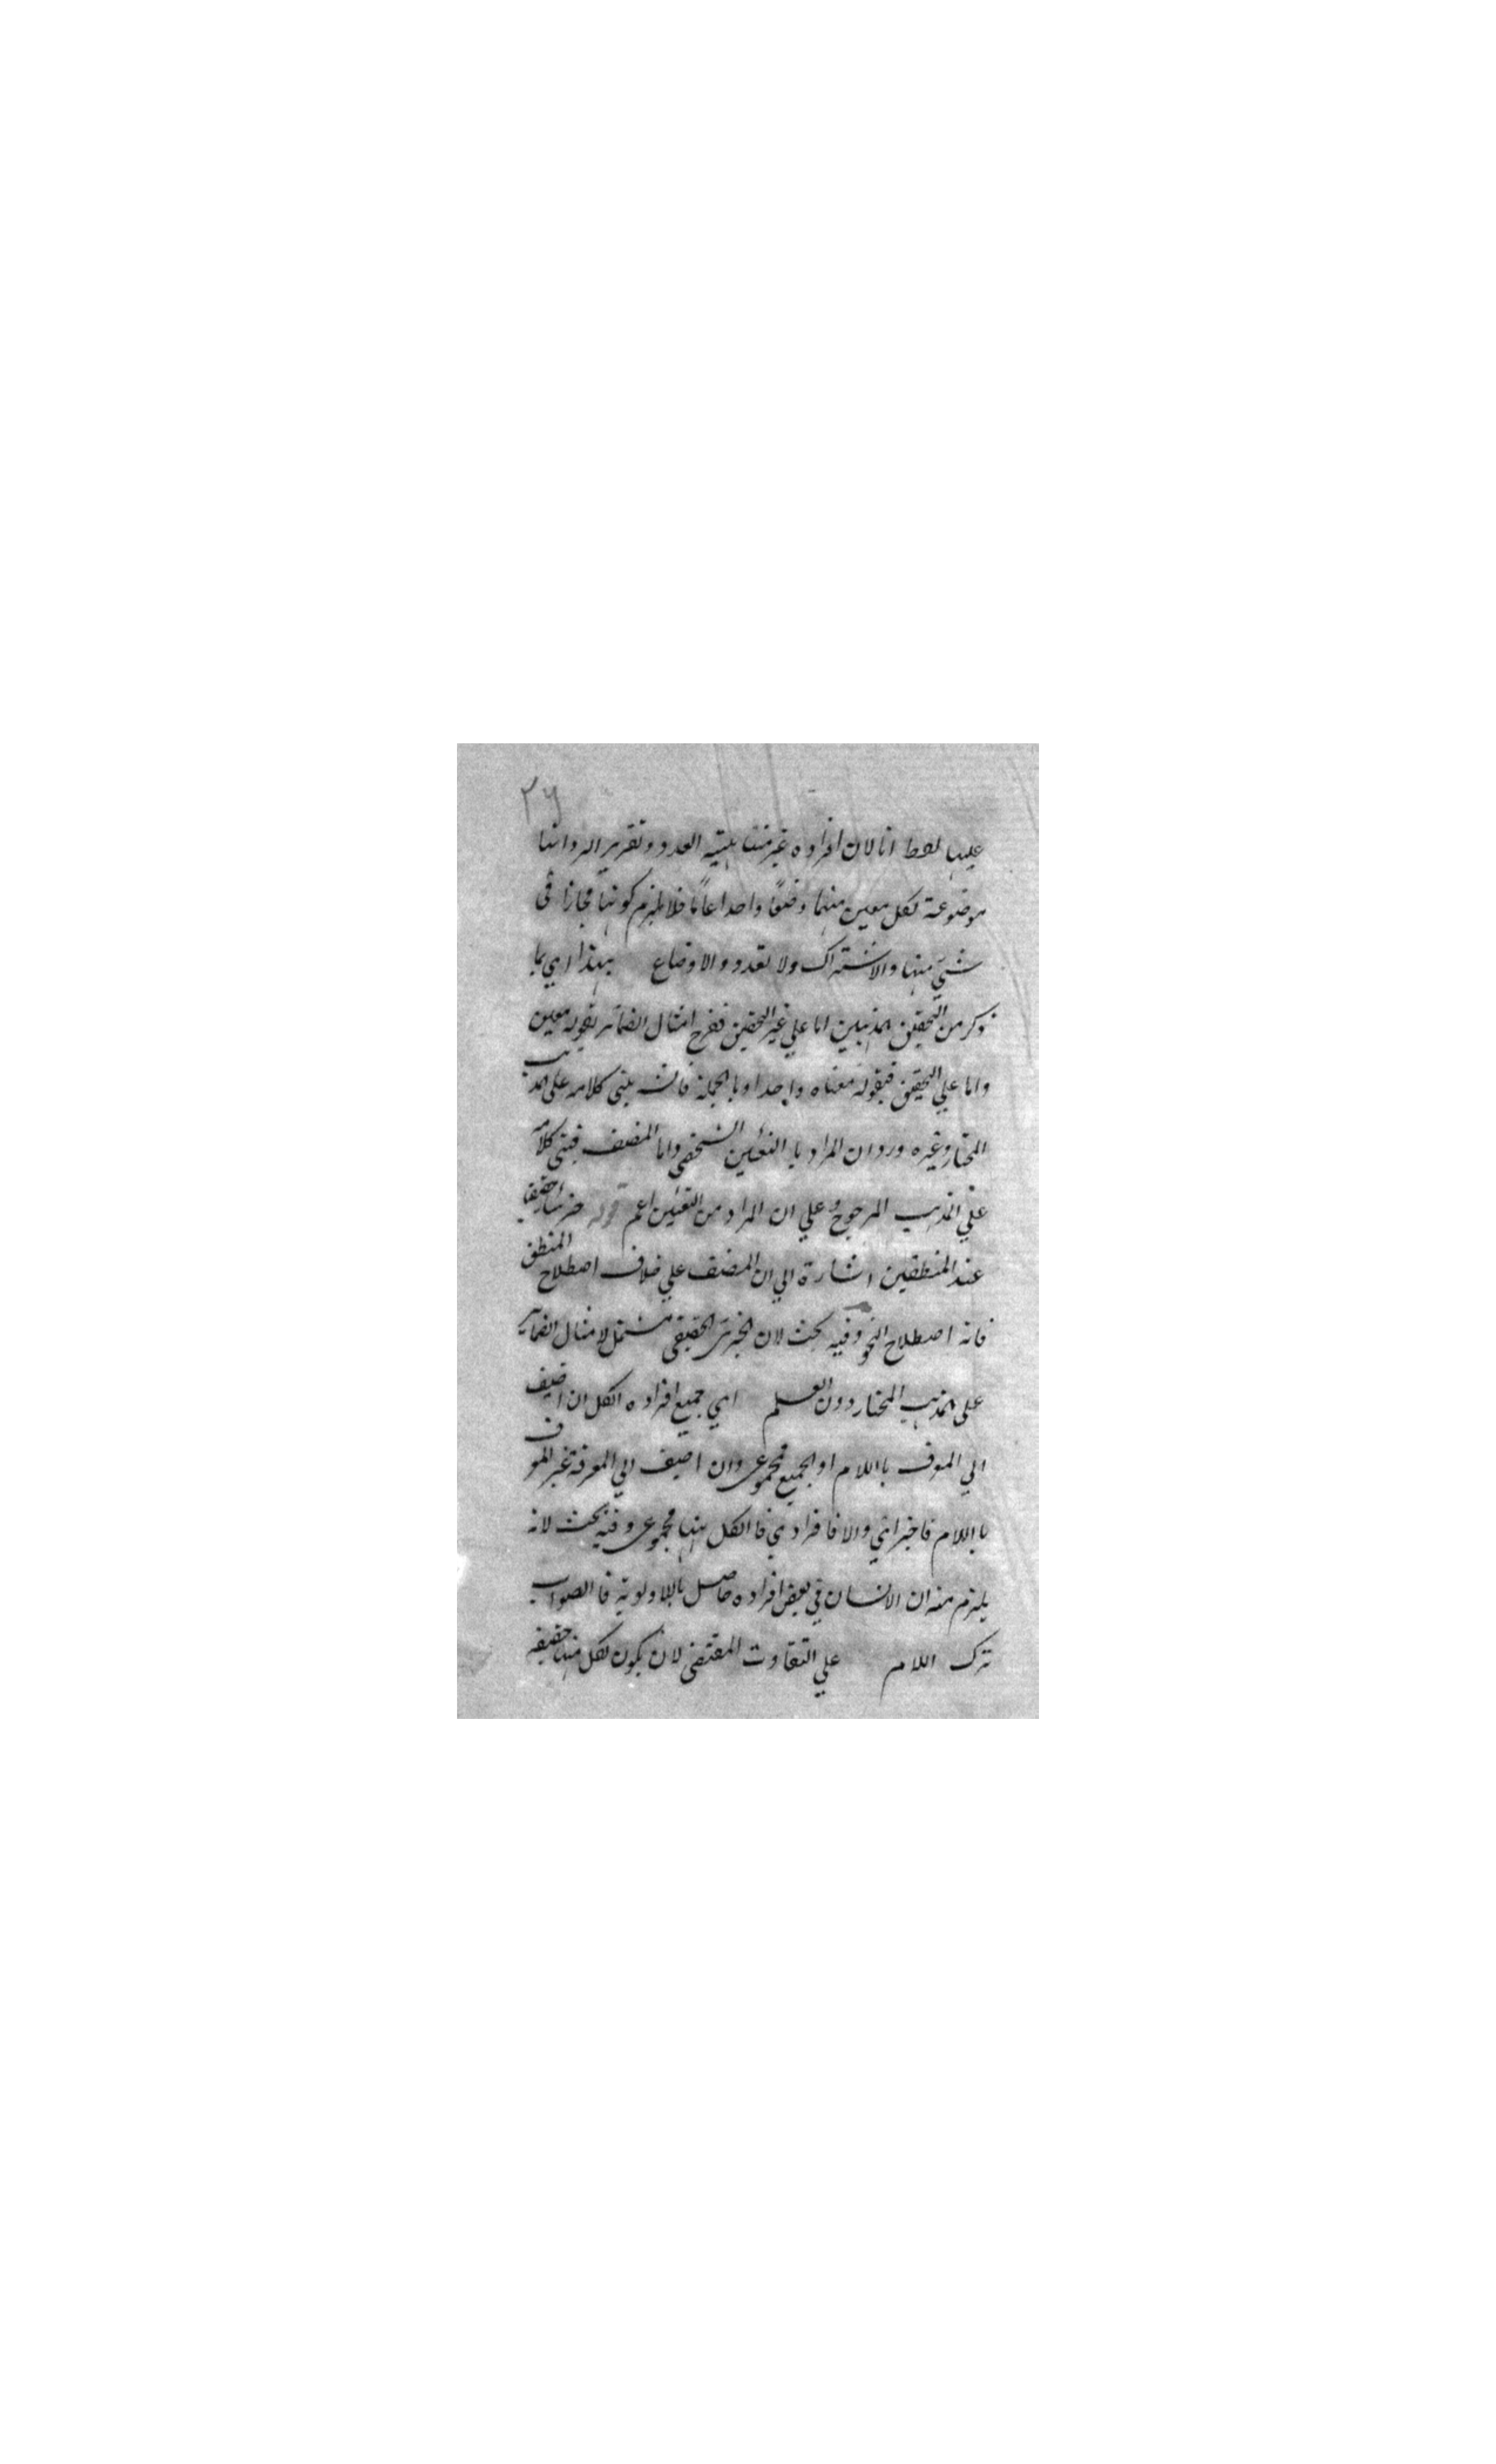 ۲۶
عليها لفظ انا لان افراده غير متناهية العدد وتقرير الرد انها
موضوعة لكل معين منها وضعًا واحدا عامًا فلا يلزم كونها مجازا في
شيئ منها والاشتراك ولا تعدد والاوضاع بهذا اي بما
ذكر من التحقيق المذهبين اما علي غير التحقيق فخرج امثال الضمائر بقوله معين
واما علي التحقيق فبقوله معناه واحدا وبالجملة فانه بني كلامه على المذهب
المختار وغيره ورد ان المراد با التعين الشخصي واما المصنف فبنى كلامه
علي المذهب المرجوح وعلي ان المراد من التعين اعم قوله جزئيا حقيقيا
عند المنطقين اشارة الي ان المصنف علي خلاف اصطلاح المنطق
فانه اصطلاح النحو وفيه بحث لان الجزئ الحقيقي مشتمل لامثال الضماير
على المذهب المختار دون العلم اي جميع افراده الكل ان اضيف
الي المعرف بااللام او الجميع فمجموعى وان اضيف الي المعرفة غير المعرف
بااللام فاجزائي والا فافرادي فا الكل ههنا مجموعى وفيه بحث لانه
يلزم منه ان الانسان في بعض افراده حاصل باالاولوية فا الصواب
ترك اللام علي التفاوت المقتضى لان يكون لكل منها حقيقة